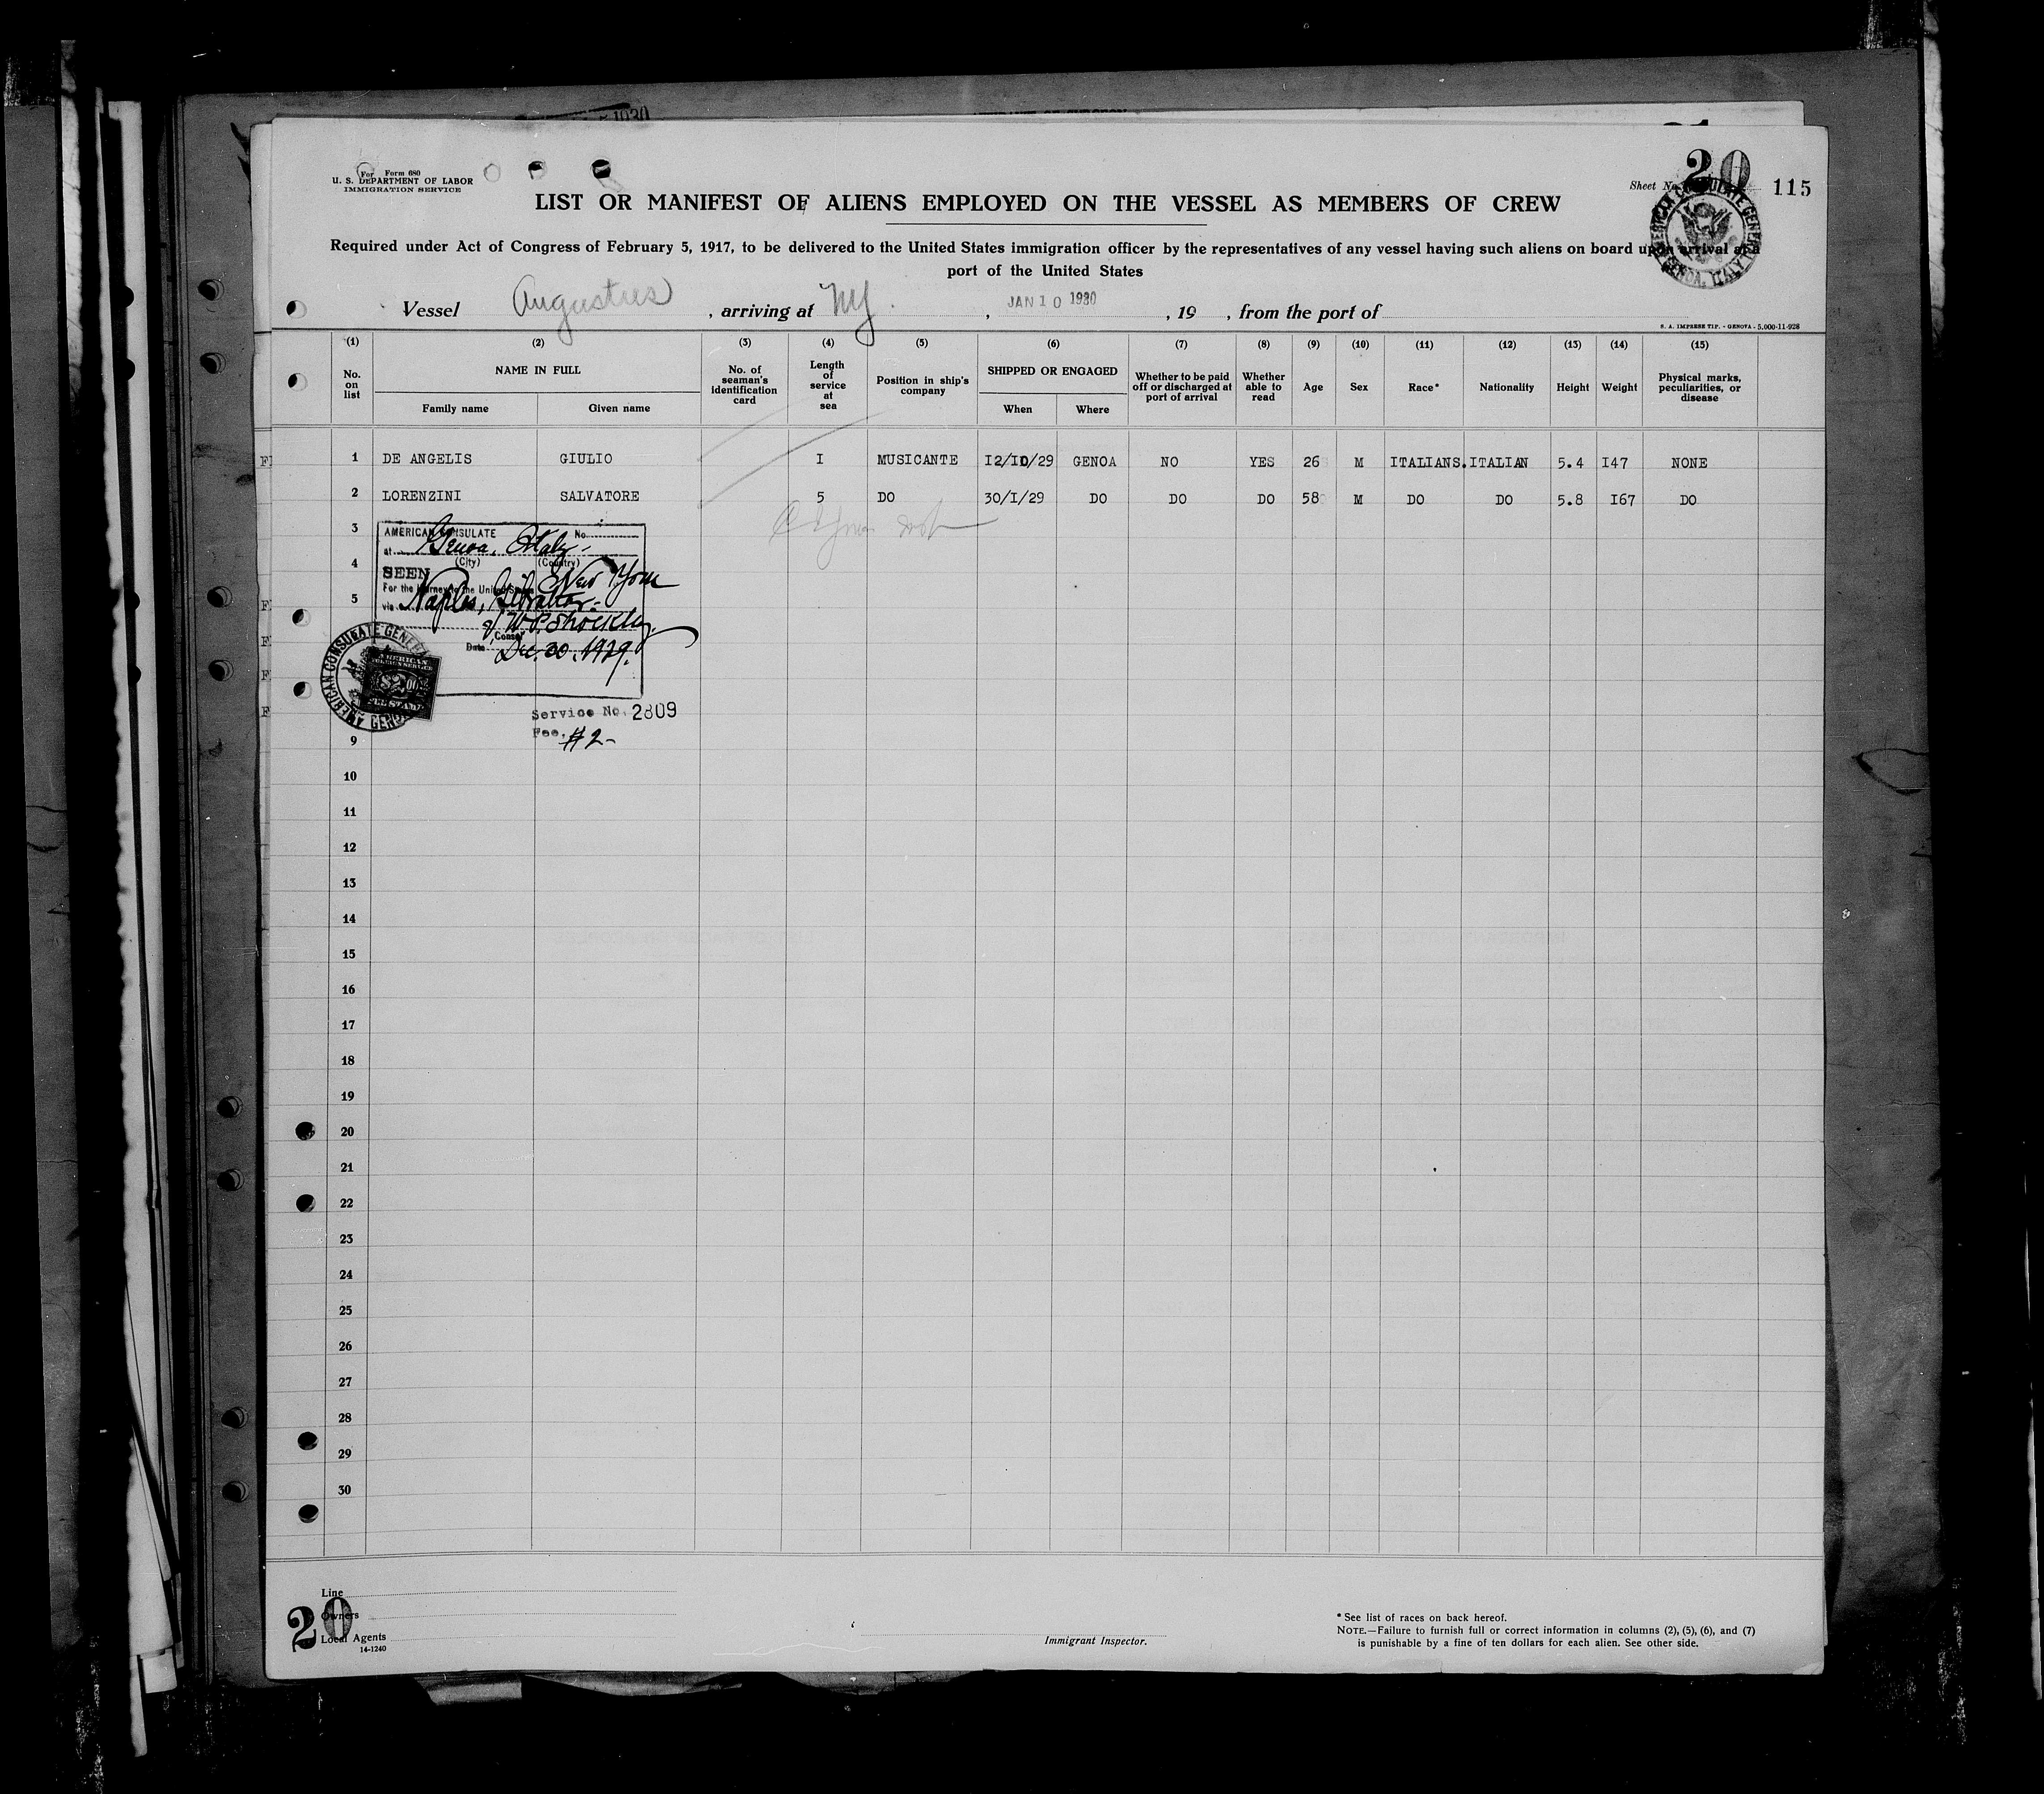 For Form 680
U. S. DEPARTMENT OF LABOR
IMMIGRATION SERVICE
Sheet No. 20 115
LIST OR MANIFEST OF ALIENS EMPLOYED ON THE VESSEL AS MEMBERS OF CREW
AMERICAN CONSULATE GENERAL GENOA, ITALY
Required under Act of Congress of February 5, 1917, to be delivered to the United States immigration officer by the representatives of any vessel having such aliens on board upon arrival at a
port of the United States
Vessel Augustus, arriving at NY, JAN 10 1930, 19 , from the port of
S. A. IMPRESE TIP. - GENOVA - 5.000-11-928
(1) (2) (3) (4) (5) (6) (7) (8) (9) (10) (11) (12) (13) (14) (15)
No. on list NAME IN FULL Family name Given name No. of seaman's identification card Length of service at sea Position in ship's company SHIPPED OR ENGAGED When Where Whether to be paid off or discharged at port of arrival Whether able to read Age Sex Race* Nationality Height Weight Physical marks, peculiarities, or disease
1 DE ANGELIS GIULIO I MUSICANTE I2/I0/29 GENOA NO YES 26 M ITALIANS. ITALIAN 5.4 I47 NONE
2 LORENZINI SALVATORE 5 DO 30/I/29 DO DO DO 58 M DO DO 5.8 I67 DO
3
AMERICAN CONSULATE No.
at Genoa, Italy
(City) (Country)
4
SEEN
For the journey to the United States New York
5
via Naples, Gibraltar
W. P. Shockley
Consul
Date Dec. 30, 1929.
AMERICAN CONSULATE GENERAL
AMERICAN FOREIGN SERVICE $2.00 FEE STAMP
Service No. 2809
Fee, #2-
9
10
11
12
13
14
15
16
17
18
19
20
21
22
23
24
25
26
27
28
29
30
Line
Owners
Local Agents
20
14-1240
Immigrant Inspector.
* See list of races on back hereof.
NOTE.—Failure to furnish full or correct information in columns (2), (5), (6), and (7)
is punishable by a fine of ten dollars for each alien. See other side.